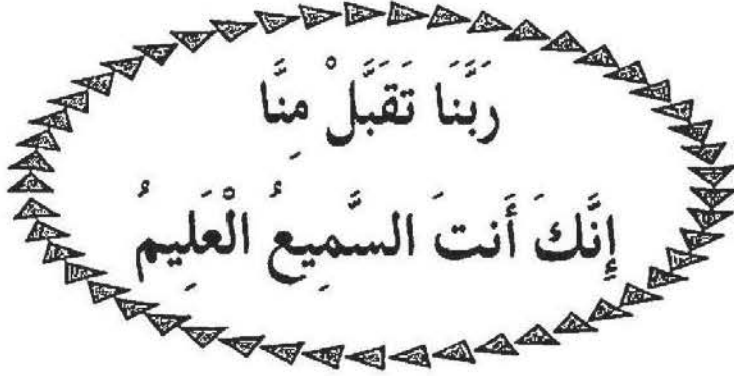 رَبَّنَا تَقَبَّلْ مِنَّا
إِنَّكَ أَنتَ السَّمِيعُ الْعَلِيمُ